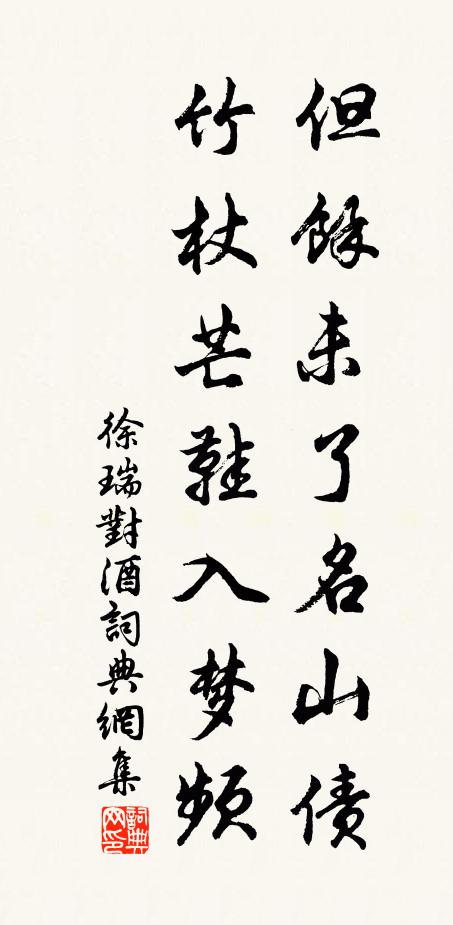 但餘未了名山债
竹杖芒鞋入梦頻
徐瑞對酒詞典網集
詞典网印